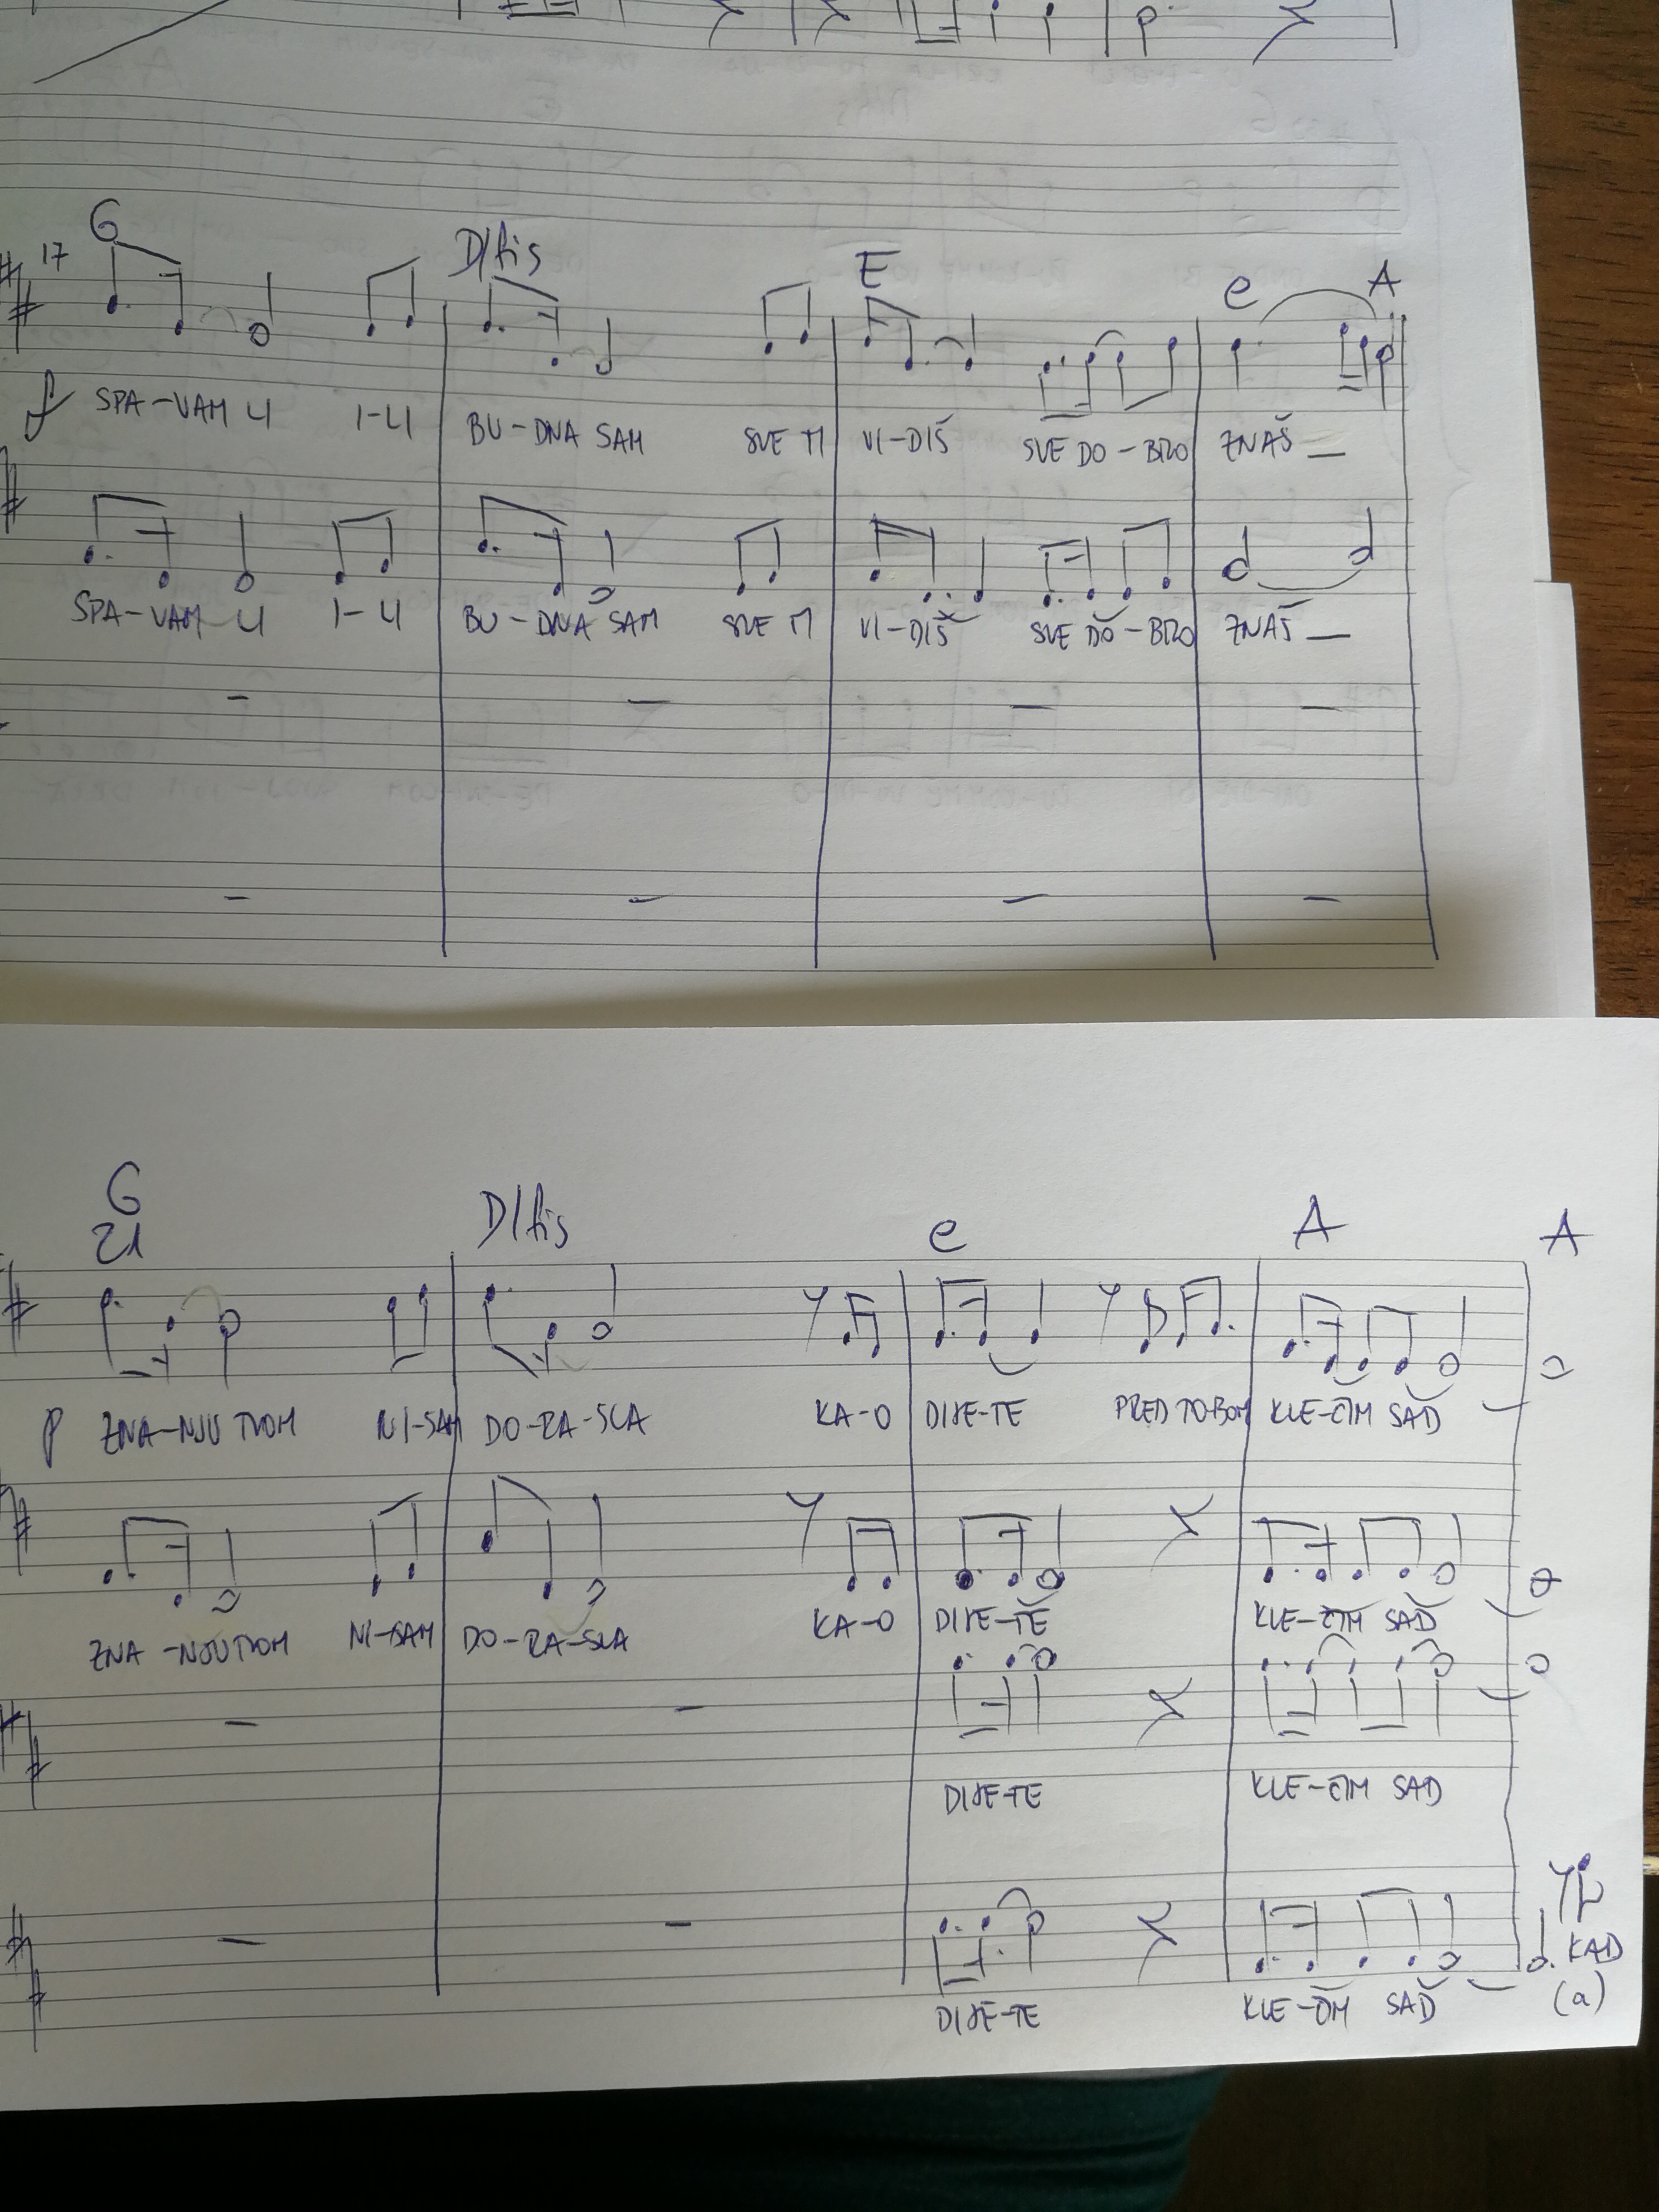 17 G D/fis E e A
f SPA-VAM LI I-LI BU-DNA SAM SVE TI VI-DIŠ SVE DO-BRO ZNAŠ
SPA-VAM LI I-LI BU-DNA SAM SVE TI VI-DIŠ SVE DO-BRO ZNAŠ
G D/fis e A A
21
p ZNA-NJU TVOM NI-SAM DO-RA-SLA KA-O DIJE-TE PRED TOBOM KLE-ČIM SAD
ZNA-NJU TVOM NI-SAM DO-RA-SLA KA-O DIJE-TE KLE-ČIM SAD
DIJE-TE KLE-ČIM SAD
DIJE-TE KLE-ČIM SAD KAD
(a)